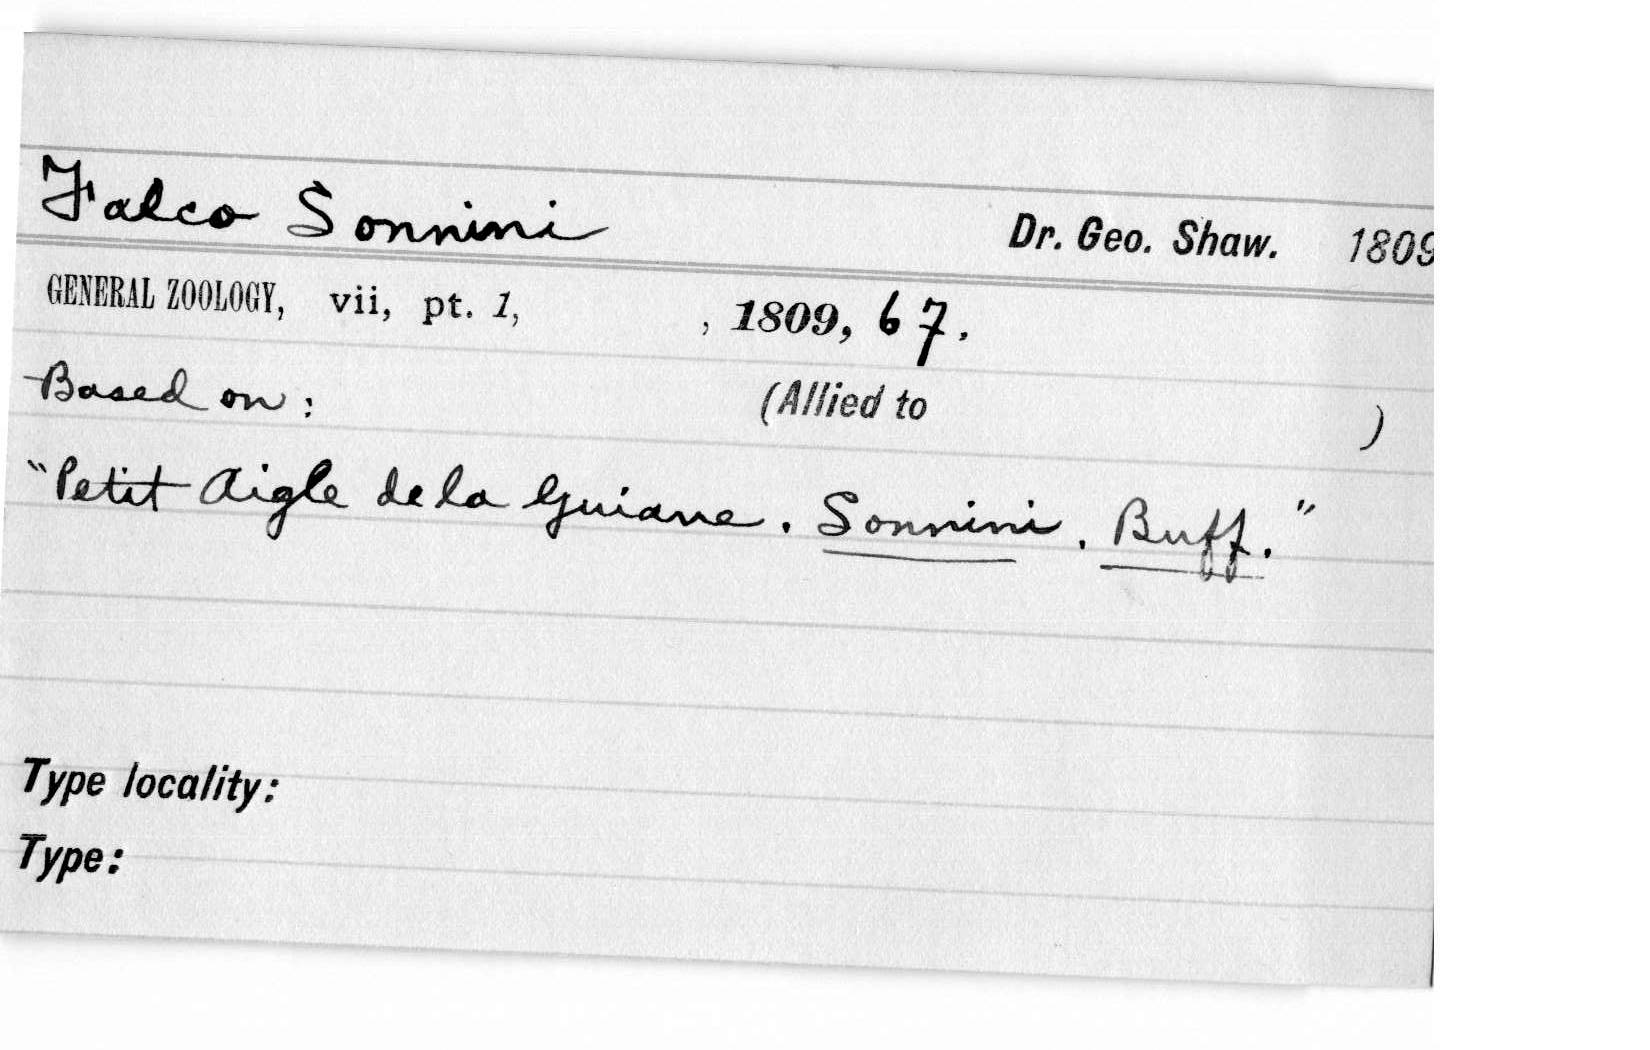 Falco Sonnini Dr. Geo. Shaw. 1809
GENERAL ZOOLOGY, vii, pt. 1, , 1809, 67.
Based on: (Allied to )
"Petit Aigle de la Guiane. Sonnini. Buff."
Type locality:
Type: